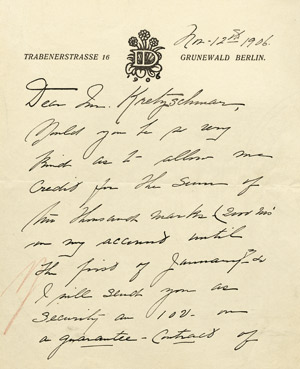 Nov-12th 1906.
TRABENERSTRASSE 16
GRUNEWALD BERLIN.
Dear Mr. Kretzschmar,
Would you be so very
Kind as to allow me
credit for the Sum of
two thousand marks (2000 Ms
on my account until
the first of January &
I will send you as
security an IOU- on
a guarantee-contract of